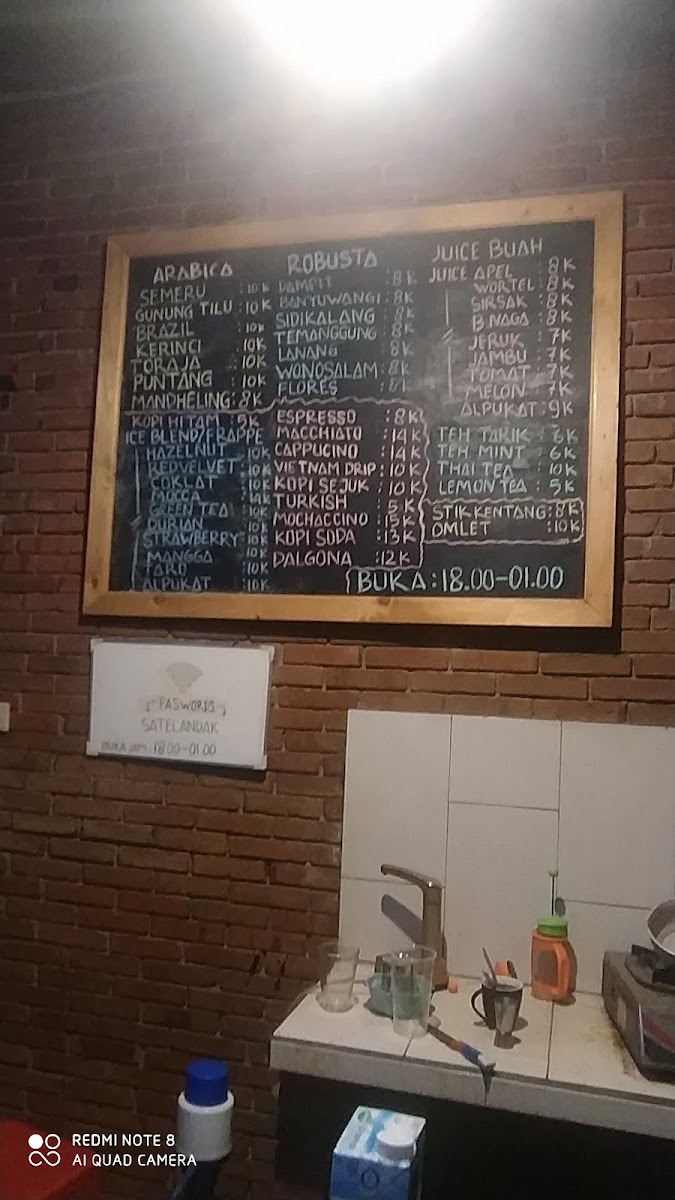 ARABICA
SEMERU : 10K
GUNUNG TILU : 10K
BRAZIL : 10K
KERINCI : 10K
TORAJA : 10K
PUNTANG : 10K
MANDHELING : 8K
KOPI HITAM : 5K
ICE BLEND/FRAPPE
HAZELNUT : 10K
REDVELVET : 10K
COKLAT : 10K
MOCCA : 14K
GREEN TEA : 10K
DURIAN : 10K
STRAWBERRY : 10K
MANGGA : 10K
TARO : 10K
ALPUKAT : 10K
ROBUSTA
DAMPIT : 8K
BANYUWANGI : 8K
SIDIKALANG : 8K
TEMANGGUNG : 8K
LANANG : 8K
WONOSALAM : 8K
FLORES : 8K
ESPRESSO : 8K
MACCHIATO : 14K
CAPPUCINO : 14K
VIETNAM DRIP : 10K
KOPI SEJUK : 10K
TURKISH : 5K
MOCHACCINO : 15K
KOPI SODA : 13K
DALGONA : 12K
JUICE BUAH
JUICE APEL : 8K
WORTEL : 8K
SIRSAK : 8K
B NAGA : 8K
JERUK : 7K
JAMBU : 7K
TOMAT : 7K
MELON : 7K
ALPUKAT : 9K
TEH TARIK : 6K
TEH MINT : 6K
THAI TEA : 10K
LEMON TEA : 5K
STIK KENTANG : 8K
OMLET : 10K
BUKA : 18.00-01.00
PASWORDS
SATELANDAK
BUKA JAM : 18.00-01.00
REDMI NOTE 8
AI QUAD CAMERA